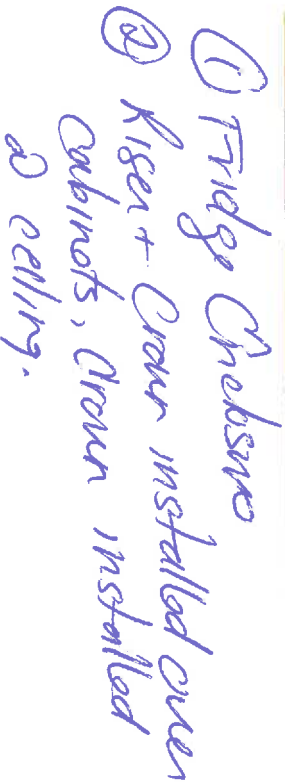 ① Fridge Enclosure
② Riser + Crown installed over
cabinets, Crown installed
@ ceiling.